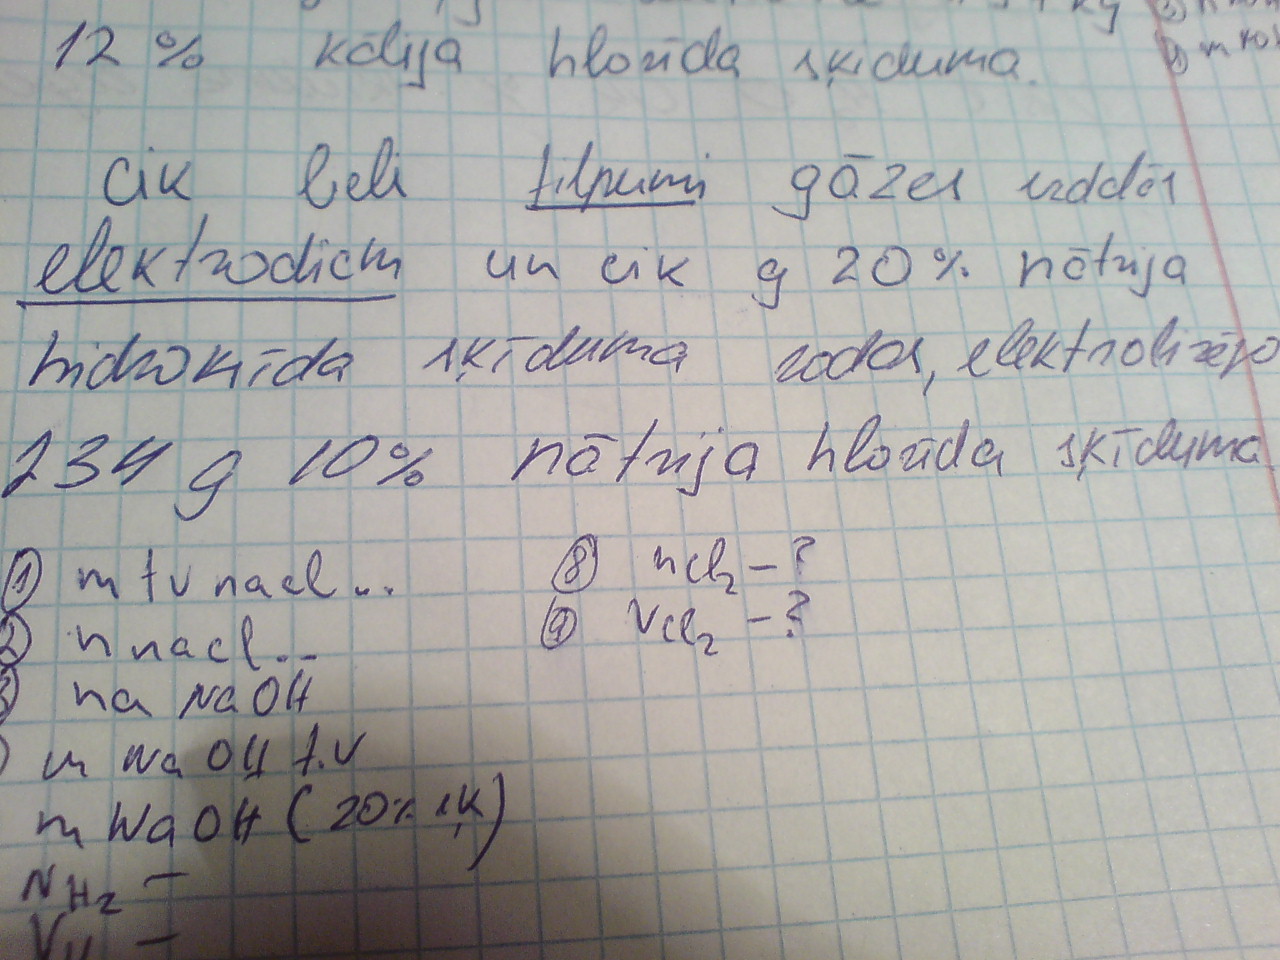 12 % kālija hlorīda šķīduma.
Cik lieli tilpumi gāzes izdalās
elektrodiem un cik g 20% nātrija
hidroksīda šķīduma rodas, elektrolizējo
234 g 10% nātrija hlorīda šķīduma
① m tv nacl.. ⑧ nCl₂ – ?
② n nacl.. ⑨ VCl₂ – ?
③ na NaOH
m NaOH t.v
m NaOH (20% šķ)
NH₂ –